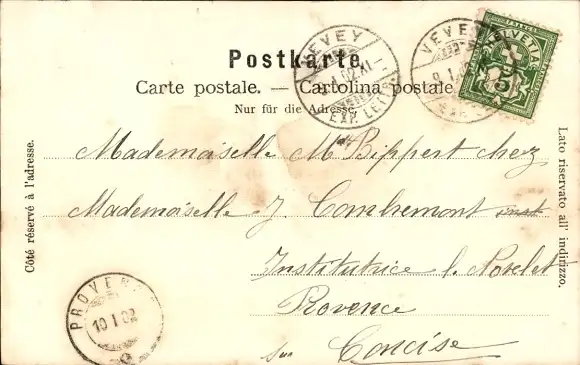 Postkarte.
Carte postale. — Cartolina postale
Nur für die Adresse.
VEVEY
9.I.02.XI-
EXP. LETTR.
VEVEY
9.I.02
EXP.
HELVETIA
5
Côté réservé à l'adresse.
Lato riservato all' indirizzo.
Mademoiselle M Bippert chez
Mademoiselle J. Combremont
Institutrice
Provence
sur Concise
PROVENCE
10 I 02